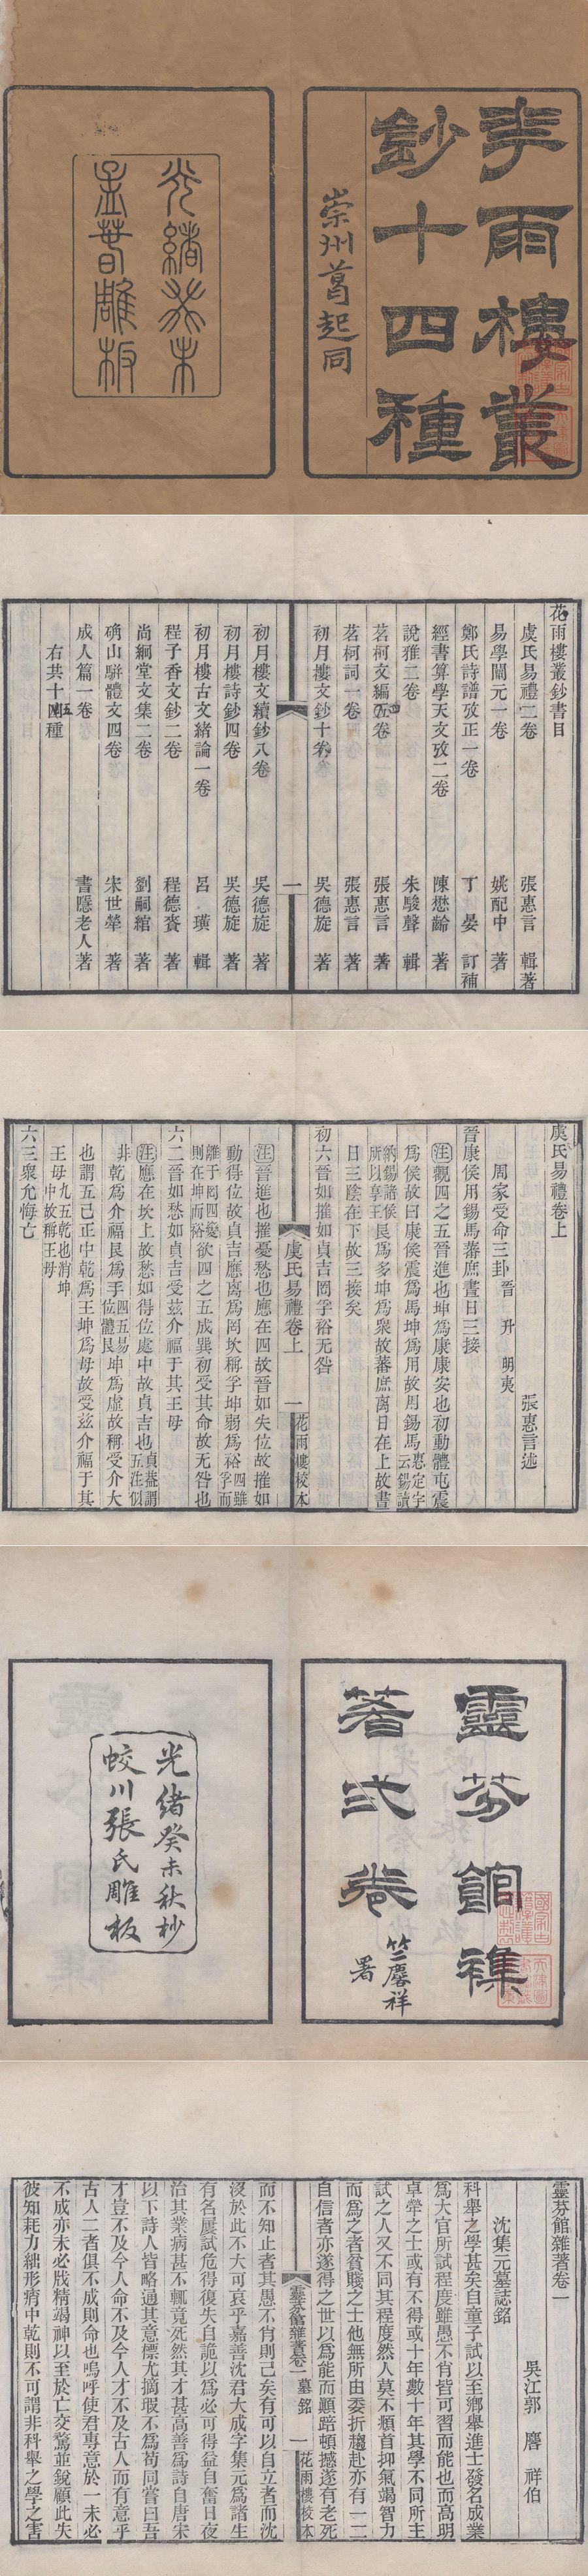 華雨樓叢
鈔十四種
崇州葛起同
光緒癸未
孟春雕板
花雨樓叢鈔書目
虞氏易禮二卷 張惠言 輯著
易學闡元一卷 姚配中 著
鄭氏詩譜攷正一卷 丁晏 訂補
經書算學天文攷二卷 陳懋齡 著
說雅二卷 朱駿聲 輯
茗柯文編五卷 張惠言 著
茗柯詞一卷 張惠言 著
初月樓文鈔十卷 吳德旋 著
一
初月樓文續鈔八卷 吳德旋 著
初月樓詩鈔四卷 吳德旋 著
初月樓古文緒論一卷 呂璜 輯
程子香文鈔二卷 程德賚 著
尚絅堂文集二卷 劉嗣綰 著
确山駢體文四卷 宋世犖 著
成人篇一卷 書隱老人著
右共十四種
虞氏易禮卷上
張惠言述
周家受命三卦 晉 升 明夷
晉康侯用錫馬蕃庶晝日三接
注觀四之五晉進也坤為康康安也初動體屯震
為侯故曰康侯震為馬坤為用故用錫馬 惠定宇云錫讀
納錫諸侯所以享王 艮為多坤為衆故蕃庶离日在上故晝
日三陰在下故三接矣
初六晉如摧如貞吉罔孚裕无咎
虞氏易禮卷上 一 花雨樓校本
注晉進也摧憂愁也應在四故晉如失位故摧如
動得位故貞吉應离為罔坎稱孚坤弱為裕 四雖孚而
離于罔四變則在坤而裕 欲四之五成巽初受其命故无咎也
六二晉如愁如貞吉受茲介福于其王母
注應在坎上故愁如得位處中故貞吉也 貞葢謂五注似
非 乾為介福艮為手 四五易位體艮 坤為虛故稱受介大
也謂五己正中乾為王坤為母故受茲介福于其
王母 九五乾也消坤中故稱王母
六三衆允悔亡
靈芬館襍
著弍卷
竺麐祥
署
光緒癸未秋杪
蛟川張氏雕板
靈芬館雜著卷一
吳江郭 麐 祥伯
沈集元墓誌銘
科舉之學甚矣自童子試以至鄉舉進士發名成業
為大官所試程度雖愚不肖皆可習而能也而高明
卓犖之士或有不得或十年數十年其學不同所主
試之人又不同其程度然人莫不頫首抑氣竭智力
而為之者貧賤之士他無所由委折趨赴亦有一二
自信者亦遂得之世以為能而顛踣頓撼遂有老死
靈芬館雜著卷一 墓銘 一 花雨樓校本
而不知止者其愚不肖則已矣有可以自立者而沈
沒於此不大可哀乎嘉善沈君大成字集元為諸生
有名屢試危得復失自詭以為必可得益自奮日夜
治其業病甚不輒竟死然其才甚高善為詩自唐宋
以下詩人皆略通其意標尤摘瑕不為苟同嘗曰吾
才豈不及今人命不及今人才不及古人而有意乎
古人二者俱不成則命也嗚呼使君專意於一未必
不成亦未必戕精竭神以至於亡交騖並銳顧此失
彼知耗力絀形瘠中乾則不可謂非科舉之學之害